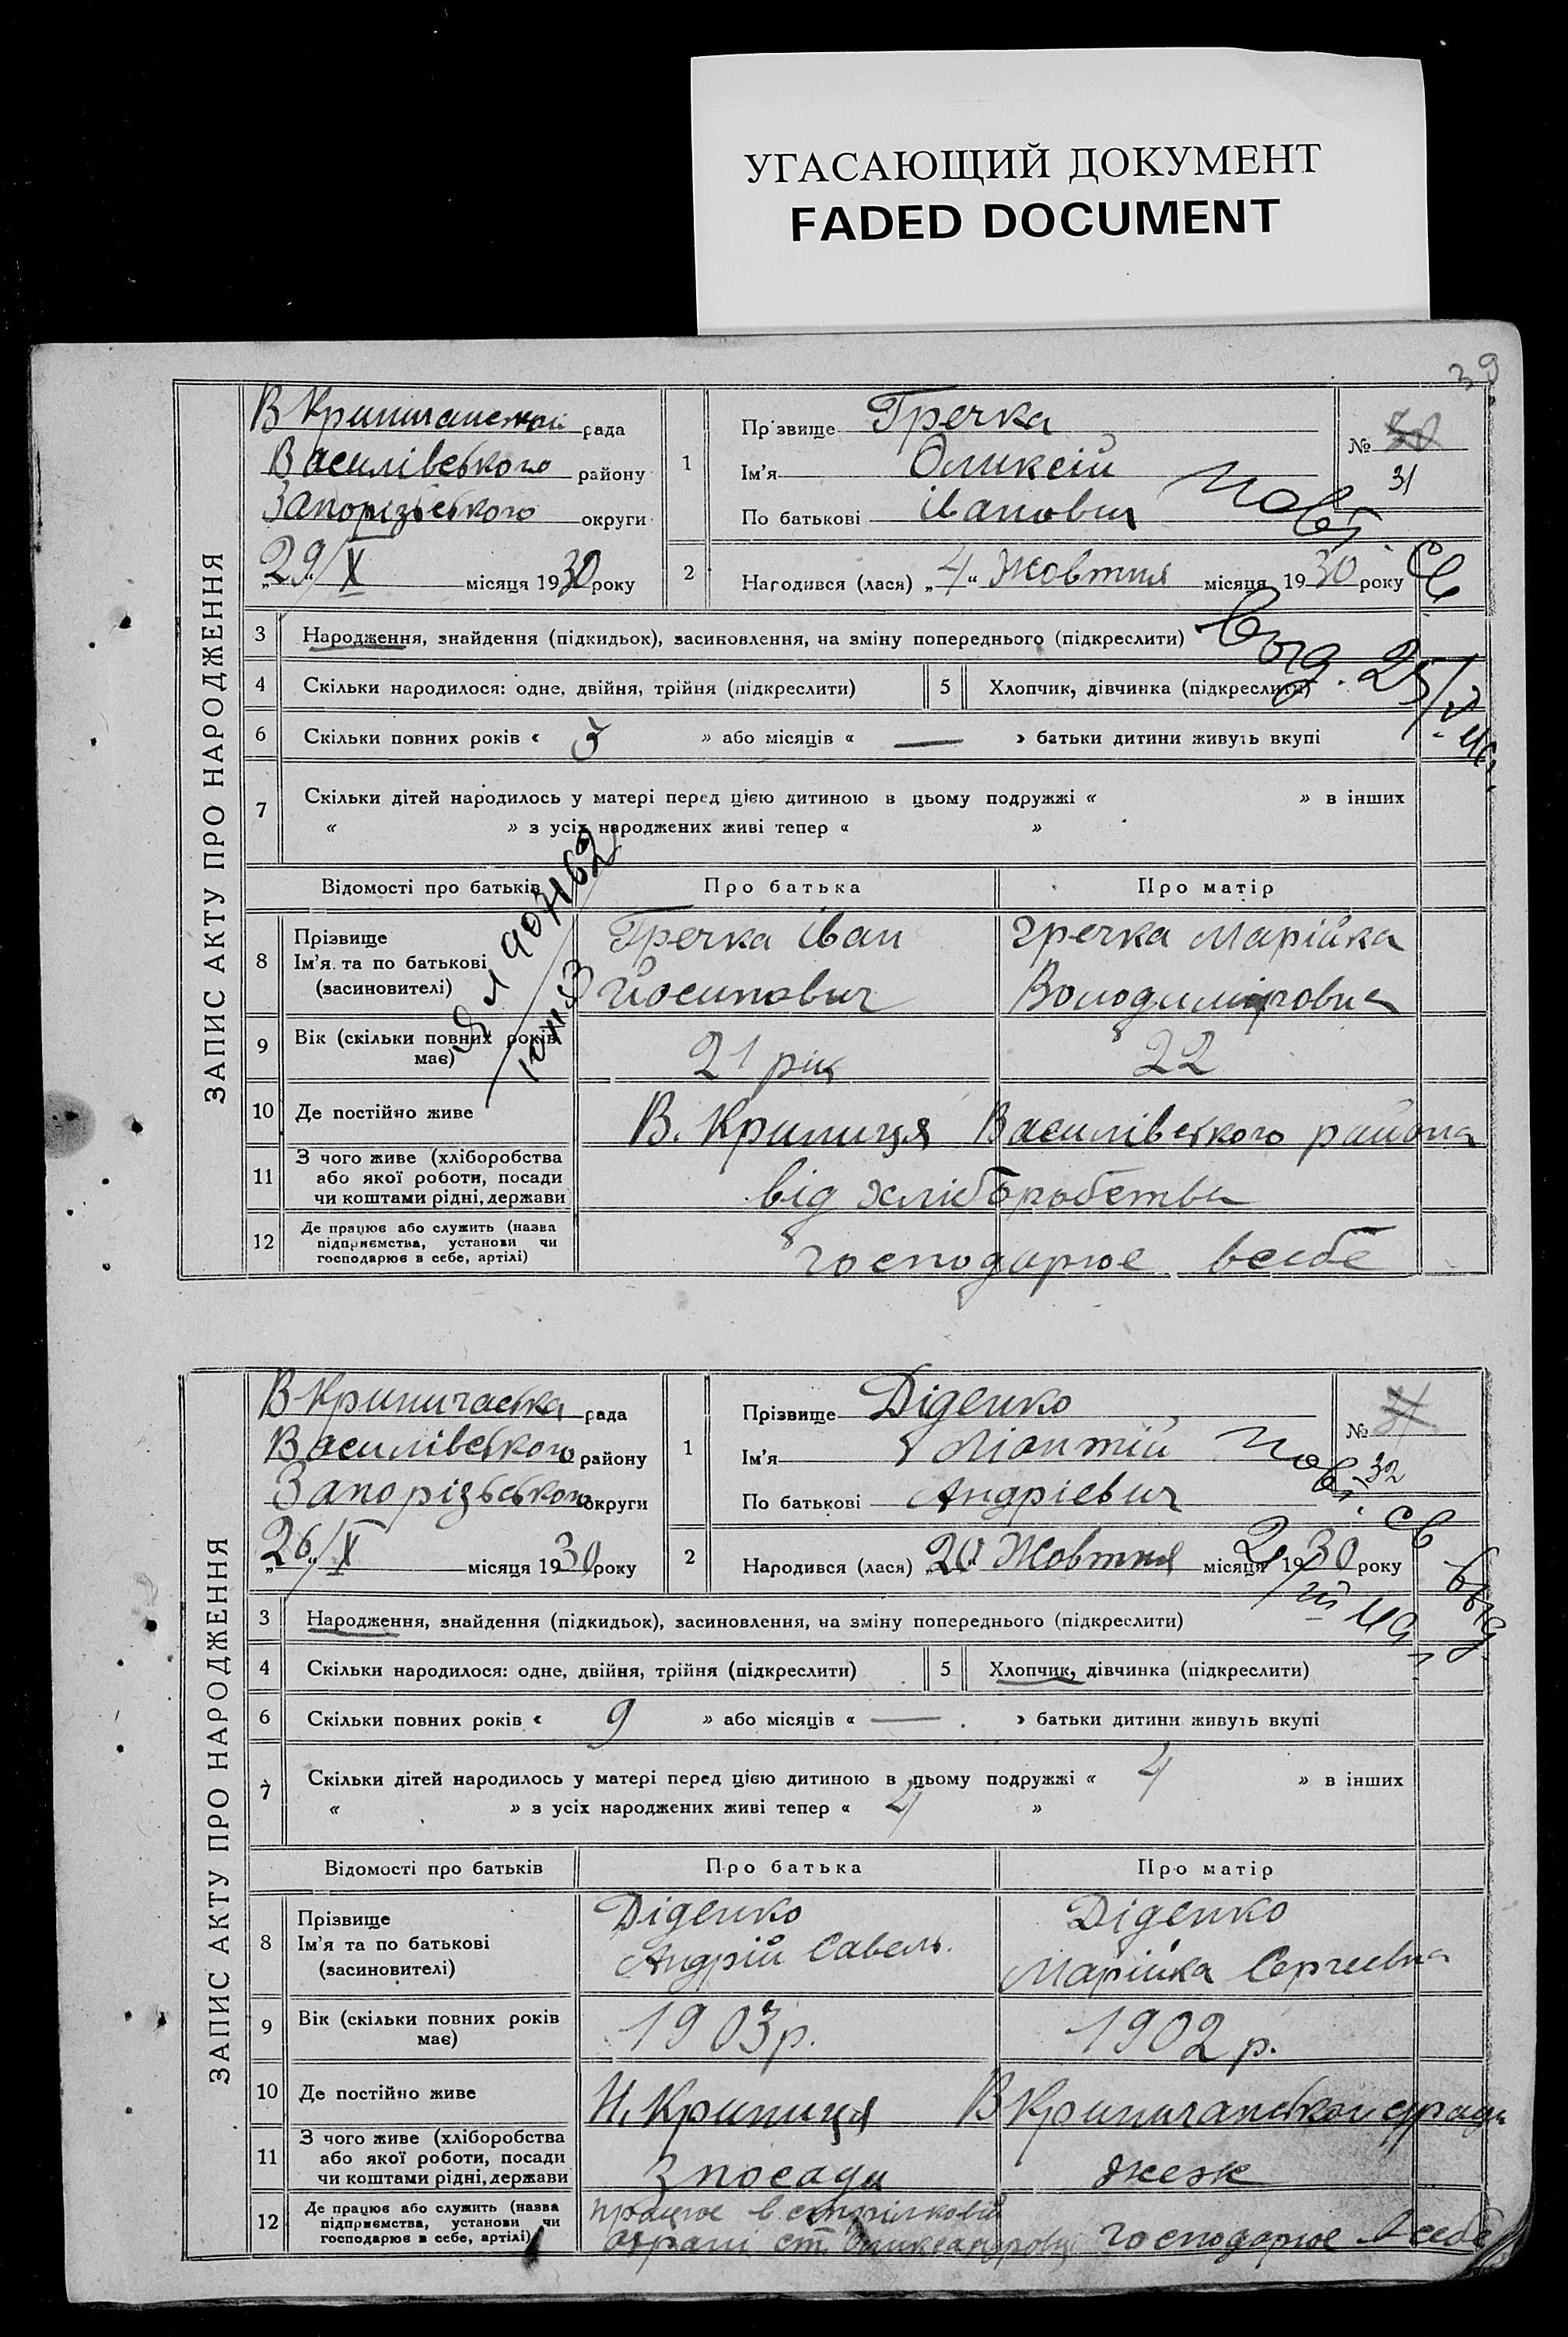 УГАСАЮЩИЙ ДОКУМЕНТ
FADED DOCUMENT
39
ЗАПИС АКТУ ПРО НАРОДЖЕННЯ
В Криничанської рада
Василівського району
Запорізьського округи
„29/X місяця 1930 року
1 Прізвище Гречка
Ім'я Оликсій
По батькові іванович
№ 30
31
2 Народився (лася) „4“ Жовтня місяця 1930 року
Повт. Св
выд. 25/
3 Народження, знайдення (підкидьок), засиновлення, на зміну попереднього (підкреслити)
4 Скільки народилося: одне, двійня, трійня (підкреслити)
5 Хлопчик, дівчинка (підкреслити)
6 Скільки повних років « 3 » або місяців « — » батьки дитини живуть вкупі
7 Скільки дітей народилось у матері перед цією дитиною в цьому подружжі « » в інших
« » з усіх народжених живі тепер « »
Відомості про батьків
Про батька
Про матір
8 Прізвище
Ім'я та по батькові
(засиновителі)
Гречка іван
Йосипович
Гречка Марійка
Володиміровна
9 Вік (скільки повних років
має)
21 рік
22
10 Де постійно живе
В. Криниця Василівського района
11 З чого живе (хліборобства
або якої роботи, посади
чи коштами рідні, держави
від хліборобства
12 Де працює або служить (назва
підприємства, установи чи
господарює в себе, артілі)
господарює всебе
ЗАПИС АКТУ ПРО НАРОДЖЕННЯ
В Криничаська рада
Василівського району
Запорізьського округи
„26/X місяця 1930 року
1 Прізвище Діденко
Ім'я Ліонтій
По батькові Андрієвич
№ 31
32
Повт. Св выд.
2 Народився (лася) „20“ Жовтня місяця 1930 року
3 Народження, знайдення (підкидьок), засиновлення, на зміну попереднього (підкреслити)
4 Скільки народилося: одне, двійня, трійня (підкреслити)
5 Хлопчик, дівчинка (підкреслити)
6 Скільки повних років « 9 » або місяців « — » батьки дитини живуть вкупі
7 Скільки дітей народилось у матері перед цією дитиною в цьому подружжі « 4 » в інших
« » з усіх народжених живі тепер « 4 »
Відомості про батьків
Про батька
Про матір
8 Прізвище
Ім'я та по батькові
(засиновителі)
Діденко
Андрій Савель.
Діденко
Марійка Сергеевна
9 Вік (скільки повних років
має)
1903 р.
1902 р.
10 Де постійно живе
Н. Криниця В Криничанської с/ради
11 З чого живе (хліборобства
або якої роботи, посади
чи коштами рідні, держави
З посади
теж
12 Де працює або служить (назва
підприємства, установи чи
господарює в себе, артілі)
працює в стрілковій
охрані ст.
господарює всебе